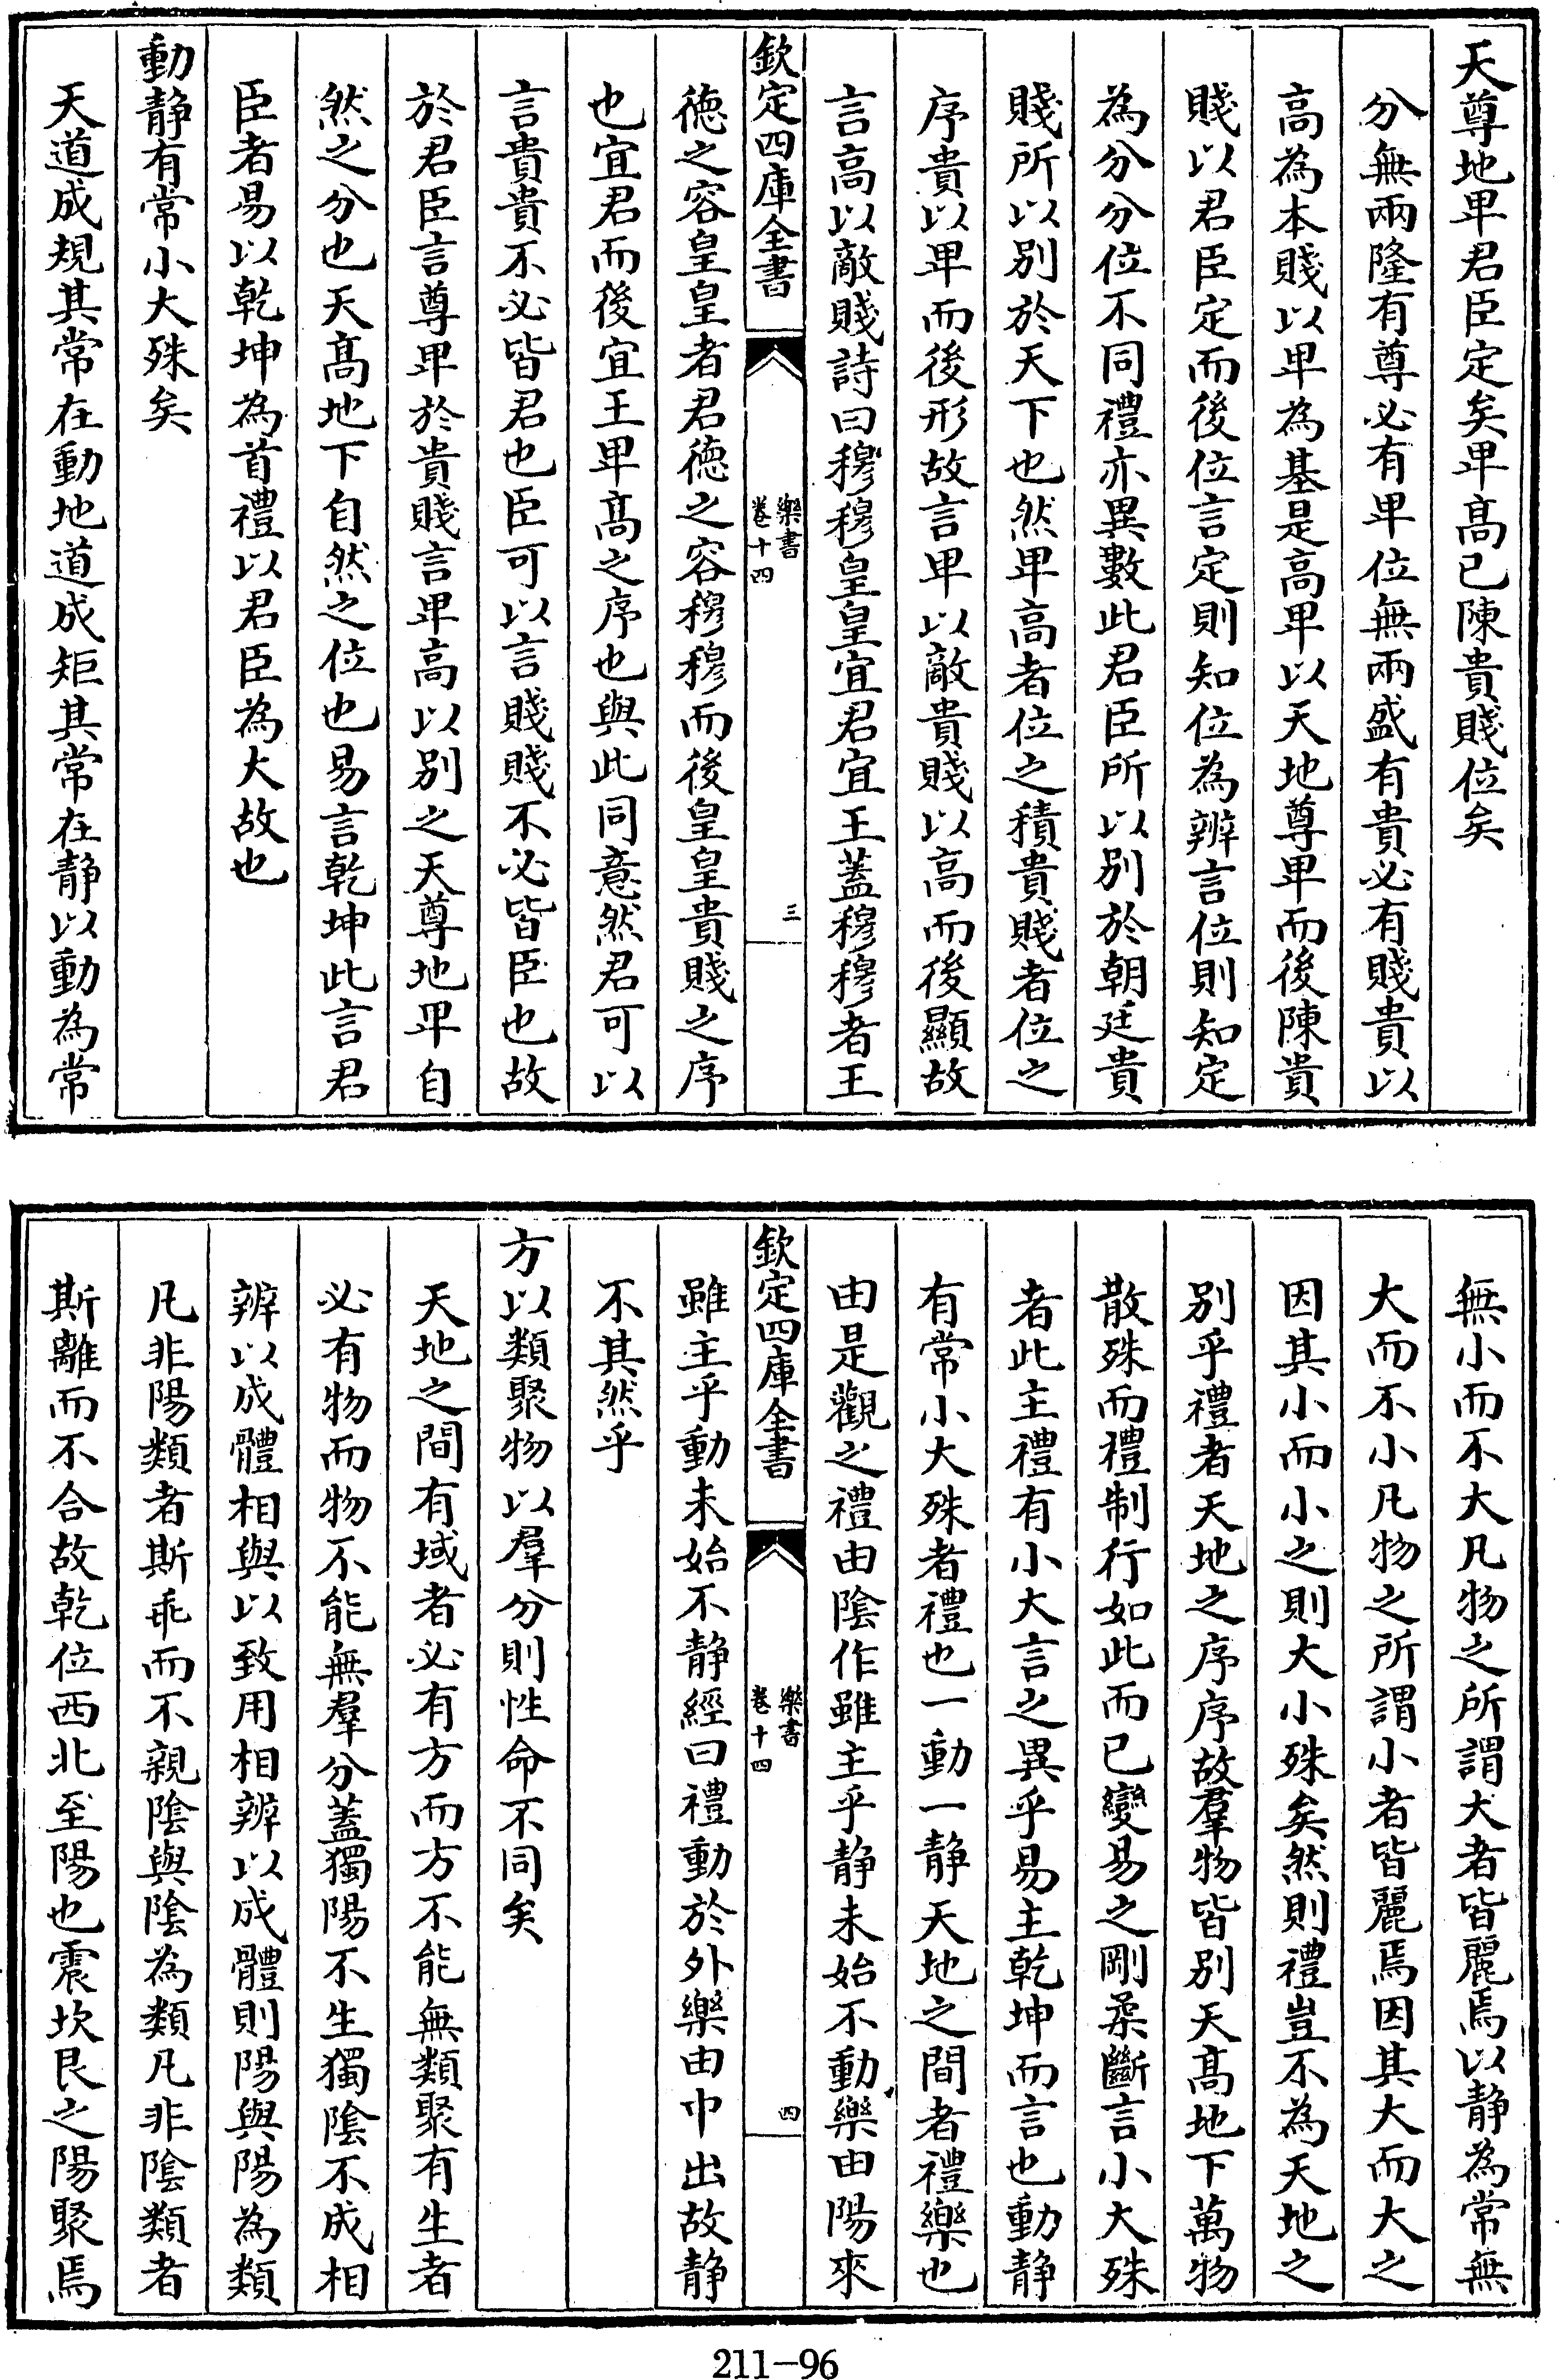 天尊地卑君臣定矣卑髙已陳貴賤位矣
分無兩隆有尊必有卑位無兩盛有貴必有賤貴以
高為本賤以卑為基是高卑以天地尊卑而後陳貴
賤以君臣定而後位言定則知位為辨言位則知定
為分分位不同禮亦異數此君臣所以别於朝廷貴
賤所以别於天下也然卑高者位之積貴賤者位之
序貴以卑而後形故言卑以敵貴賤以高而後顯故
言高以敵賤詩曰穆穆皇皇宜君宜王蓋穆穆者王
欽定四庫全書
樂書
卷十四
三
徳之容皇皇者君徳之容穆穆而後皇皇貴賤之序
也宜君而後宜王卑髙之序也與此同意然君可以
言貴貴不必皆君也臣可以言賤賤不必皆臣也故
於君臣言尊卑於貴賤言卑高以别之天尊地卑自
然之分也天髙地下自然之位也易言乾坤此言君
臣者易以乾坤為首禮以君臣為大故也
動静有常小大殊矣
天道成規其常在動地道成矩其常在静以動為常
無小而不大凡物之所謂大者皆麗焉以静為常無
大而不小凡物之所謂小者皆麗焉因其大而大之
因其小而小之則大小殊矣然則禮豈不為天地之
别乎禮者天地之序序故羣物皆别天髙地下萬物
散殊而禮制行如此而已變易之剛柔斷言小大殊
者此主禮有小大言之異乎易主乾坤而言也動静
有常小大殊者禮也一動一静天地之間者禮樂也
由是觀之禮由陰作雖主乎静未始不動樂由陽來
欽定四庫全書
樂書
卷十四
四
雖主乎動未始不静經曰禮動於外樂由中出故静
不其然乎
方以類聚物以羣分則性命不同矣
天地之間有域者必有方而方不能無類聚有生者
必有物而物不能無羣分蓋獨陽不生獨陰不成相
辨以成體相與以致用相辨以成體則陽與陽為類
凡非陽類者斯乖而不親陰與陰為類凡非陰類者
斯離而不合故乾位西北至陽也震坎艮之陽聚焉
211-96